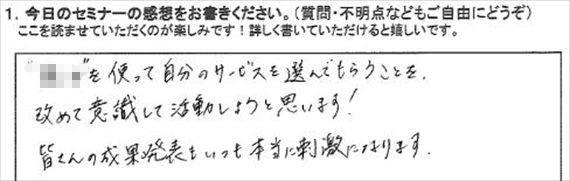 1. 今日のセミナーの感想をお書きください。(質問・不明点などもご自由にどうぞ)
ここを読ませていただくのが楽しみです!詳しく書いていただけると嬉しいです。
"　　"を使って自分のサービスを選んでもらうことを、
改めて意識して活動しようと思います!
皆さんの成果発表もいつも本当に刺激になります。